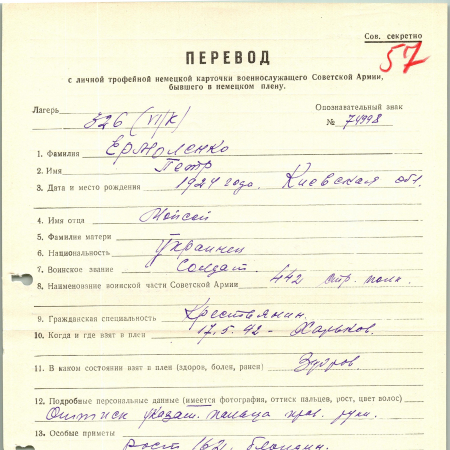 Сов. секретно
57
ПЕРЕВОД
с личной трофейной немецкой карточки военнослужащего Советской Армии,
бывшего в немецком плену.
Лагерь 326 (VI/K)
Опознавательный знак
№ 74998
1. Фамилия Ермоленко
2. Имя Петр
3. Дата и место рождения 1924 года. Киевская обл.
4. Имя отца Мойсей
5. Фамилия матери
6. Национальность Украинец
7. Воинское звание Солдат.
8. Наименование воинской части Советской Армии 442 стр. полк.
9. Гражданская специальность Крестьянин.
10. Когда и где взят в плен 17.5.42 - Харьков.
11. В каком состоянии взят в плен (здоров, болен, ранен) Здоров
12. Подробные персональные данные (имеется фотография, оттиск пальцев, рост, цвет волос)
Оттиск указат. пальца прав. руки.
13. Особые приметы
рост 162, блондин.